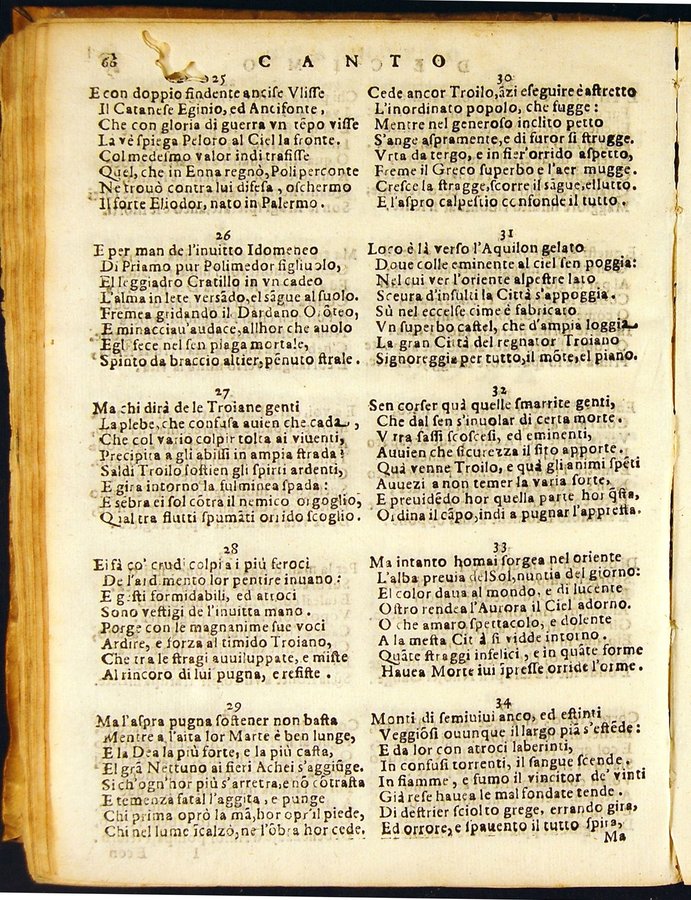 66
CANTO
25
E con doppio findente ancise Vlisse
Il Catanese Eginio, ed Antifonte,
Che con gloria di guerra vn tẽpo visse
La vè spiega Peloro al Ciel la fronte.
Col medesmo valor indi trafisse
Quel, che in Enna regnò, Poliperconte
Ne trouò contra lui difesa, o schermo
Il forte Eliodor, nato in Palermo.
26
E per man de l'inuitto Idomeneo
Di Priamo pur Polimedor figliuolo,
El leggiadro Cratillo in vn cadeo
L'alma in lete versãdo, el sãgue al suolo.
Fremea gridando il Dardano Oròteo,
E minacciau'audace, allhor che auolo
Egli fece nel sen piaga mortale,
Spinto da braccio altier, pẽnuto strale.
27
Ma chi dirà de le Troiane genti
La plebe, che confusa auien che cada,
Che col vario colpir tolta ai viuenti,
Precipita a gli abissi in ampia strada?
Saldi Troilo sostien gli spirti ardenti,
E gira intorno la fulminea spada:
E sẽbra ei sol cõtra il nemico orgoglio,
Qual tra flutti spumãti orrido scoglio.
28
Ei fà co' crudi colpi a i più feroci
De l'ardimento lor pentire inuano:
E gesti formidabili, ed atroci
Sono vestigi de l'inuitta mano.
Porge con le magnanime sue voci
Ardire, e forza al timido Troiano,
Che tra le stragi auuiluppate, e miste
Al rincoro di lui pugna, e resiste.
29
Ma l'aspra pugna sostener non basta
Mentre a l'aita lor Marte è ben lunge,
E la Dea la più forte, e la più casta,
El grã Nettuno ai fieri Achei s'aggiũge.
Si ch'ogn'hor più s'arretra, e nõ cõtrasta
E temenza fatal l'aggita, e punge
Chi prima oprò la mã, hor opr'il piede,
Chi nel lume ĩcalzò, ne l'õbra hor cede.
30
Cede ancor Troilo, ãzi eseguire è astretto
L'inordinato popolo, che fugge:
Mentre nel generoso inclito petto
S'ange aspramente, e di furor si strugge.
Vrta da tergo, e in fier'orrido aspetto,
Freme il Greco superbo e l'aer mugge.
Cresce la stragge, scorre il sãgue, el lutto.
E l'aspro calpestio confonde il tutto.
31
Loco è là verso l'Aquilon gelato
Doue colle eminente al ciel sen poggia:
Nel cui ver l'oriente alpestre lato
Sceura d'insulti la Città s'appoggia.
Sù nel eccelse cime è fabricato
Vn superbo castel, che d'ampia loggia
La gran Città del regnator Troiano
Signoreggia per tutto, il mõte, el piano.
32
Sen corser quà quelle smarrite genti,
Che dal sen s'inuolar di certa morte.
Vrra sassi scoscesi, ed eminenti,
Auuien che sicurezza il sito apporte.
Quà venne Troilo, e quà gli animi spẽti
Auuezi a non temer la varia sorte,
E preuidẽdo hor quella parte hor q̃sta,
Ordina il cãpo, indi a pugnar l'appresta.
33
Ma intanto homai sorgea nel oriente
L'alba preuia del Sol, nuntia del giorno:
El color daua al mondo, e di lucente
Ostro rendea l'Aurora il Ciel adorno.
O che amaro spettacolo, e dolente
A la mesta Città si vidde intorno.
Quãte straggi infelici, e in quãte forme
Hauea Morte iui ĩpresse orride l'orme.
34
Monti di semiuiui anco, ed estinti
Veggiõsi ouunque il largo piã s'estẽde:
E da lor con atroci laberinti,
In confusi torrenti, il sangue scende.
In fiamme, e fumo il vincitor de' vinti
Già rese hauea le mal fondate tende.
Di destrier sciolto grege, errando gira,
Ed orrore, e spauento il tutto spira,
Ma